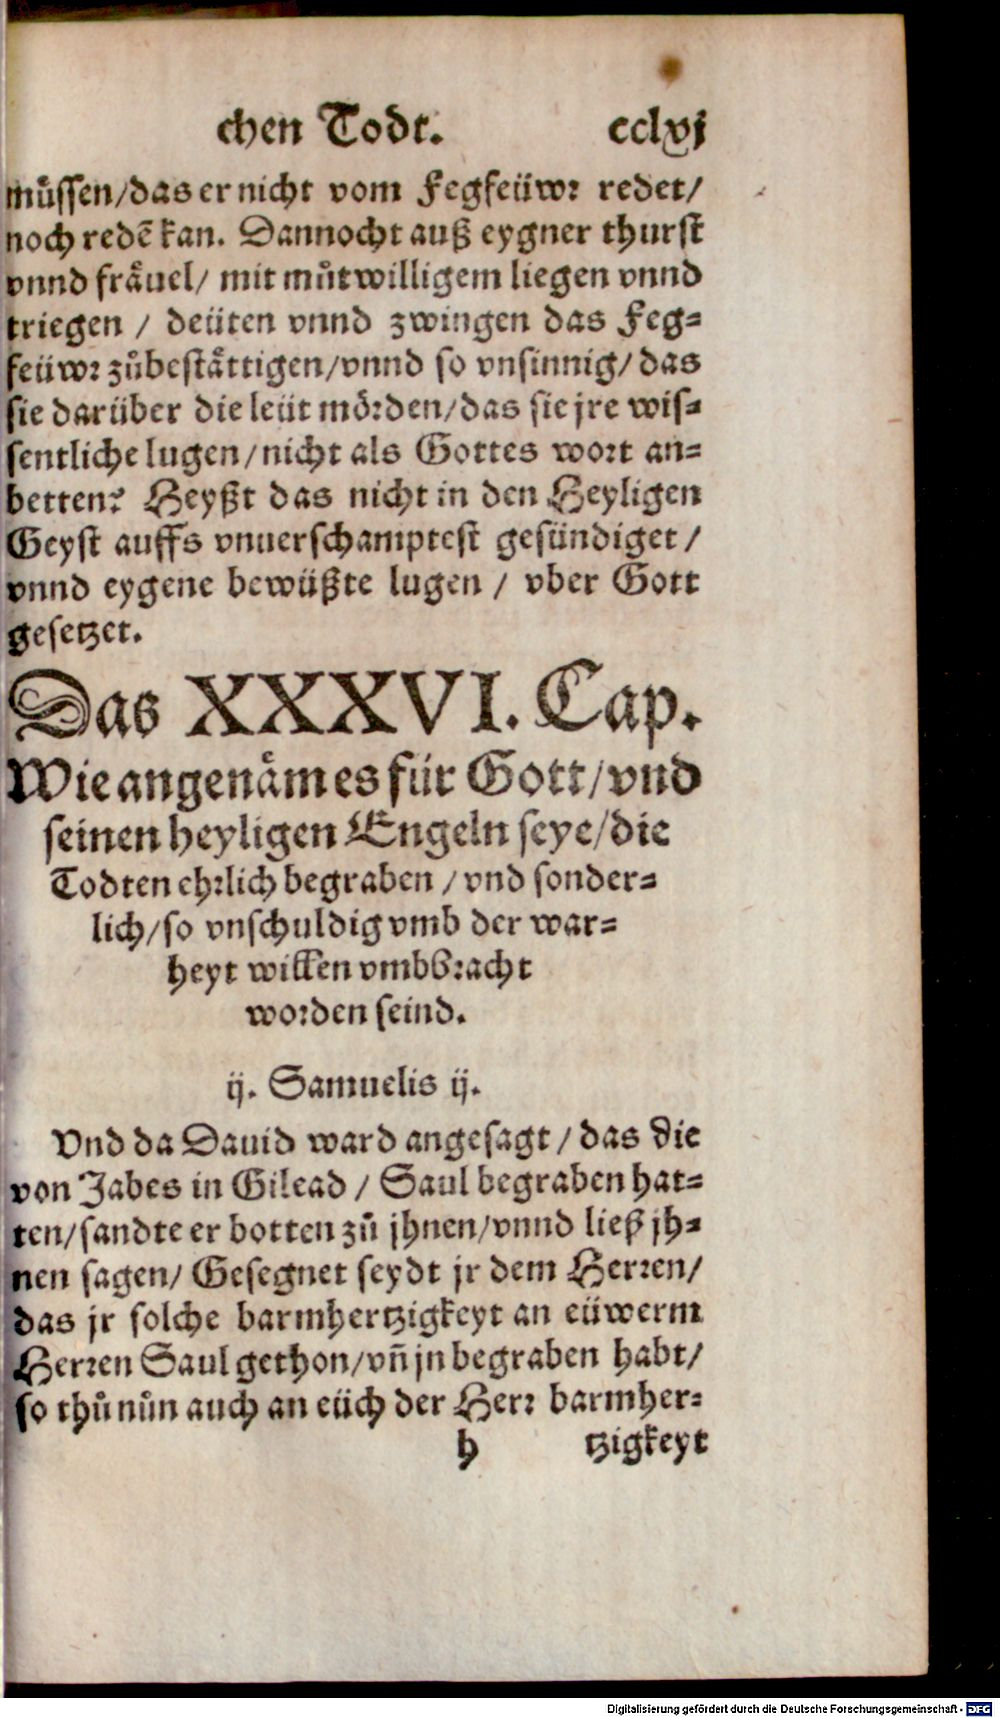 chen Todt. cclxvj
muͤssen/das er nicht vom Fegfeüwr redet/
noch redẽ kan. Dannocht auß eygner thurst
vnnd fraͤuel/ mit muͦtwilligem liegen vnnd
triegen / deüten vnnd zwingen das Feg-
feüwr zuͦbestaͤttigen/vnnd so vnsinnig/das
sie darüber die leüt moͤrden/das sie jre wis-
sentliche lugen/nicht als Gottes wort an-
betten? Heyßt das nicht in den Heyligen
Geyst auffs vnuerschamptest gesündiget /
vnnd eygene bewüßte lugen / vber Gott
gesetzet.
Das XXXVI. Cap.
Wie angenaͤm es für Gott/vnd
seinen heyligen Engeln seye/die
Todten ehrlich begraben /vnd sonder-
lich/so vnschuldig vmb der war-
heyt willen vmbbracht
worden seind.
ij. Samuelis ij.
Vnd da Dauid ward angesagt/das die
von Jabes in Gilead / Saul begraben hat-
ten/sandte er botten zuͦ jhnen/vnnd ließ jh-
nen sagen/ Gesegnet seydt jr dem Herren/
das jr solche barmhertzigkeyt an eüwerm
Herren Saul gethon/vñ jn begraben habt/
so thuͦ nuͦn auch an eüch der Herr barmher-
h tzigkeyt
Digitalisierung gefördert durch die Deutsche Forschungsgemeinschaft - DFG